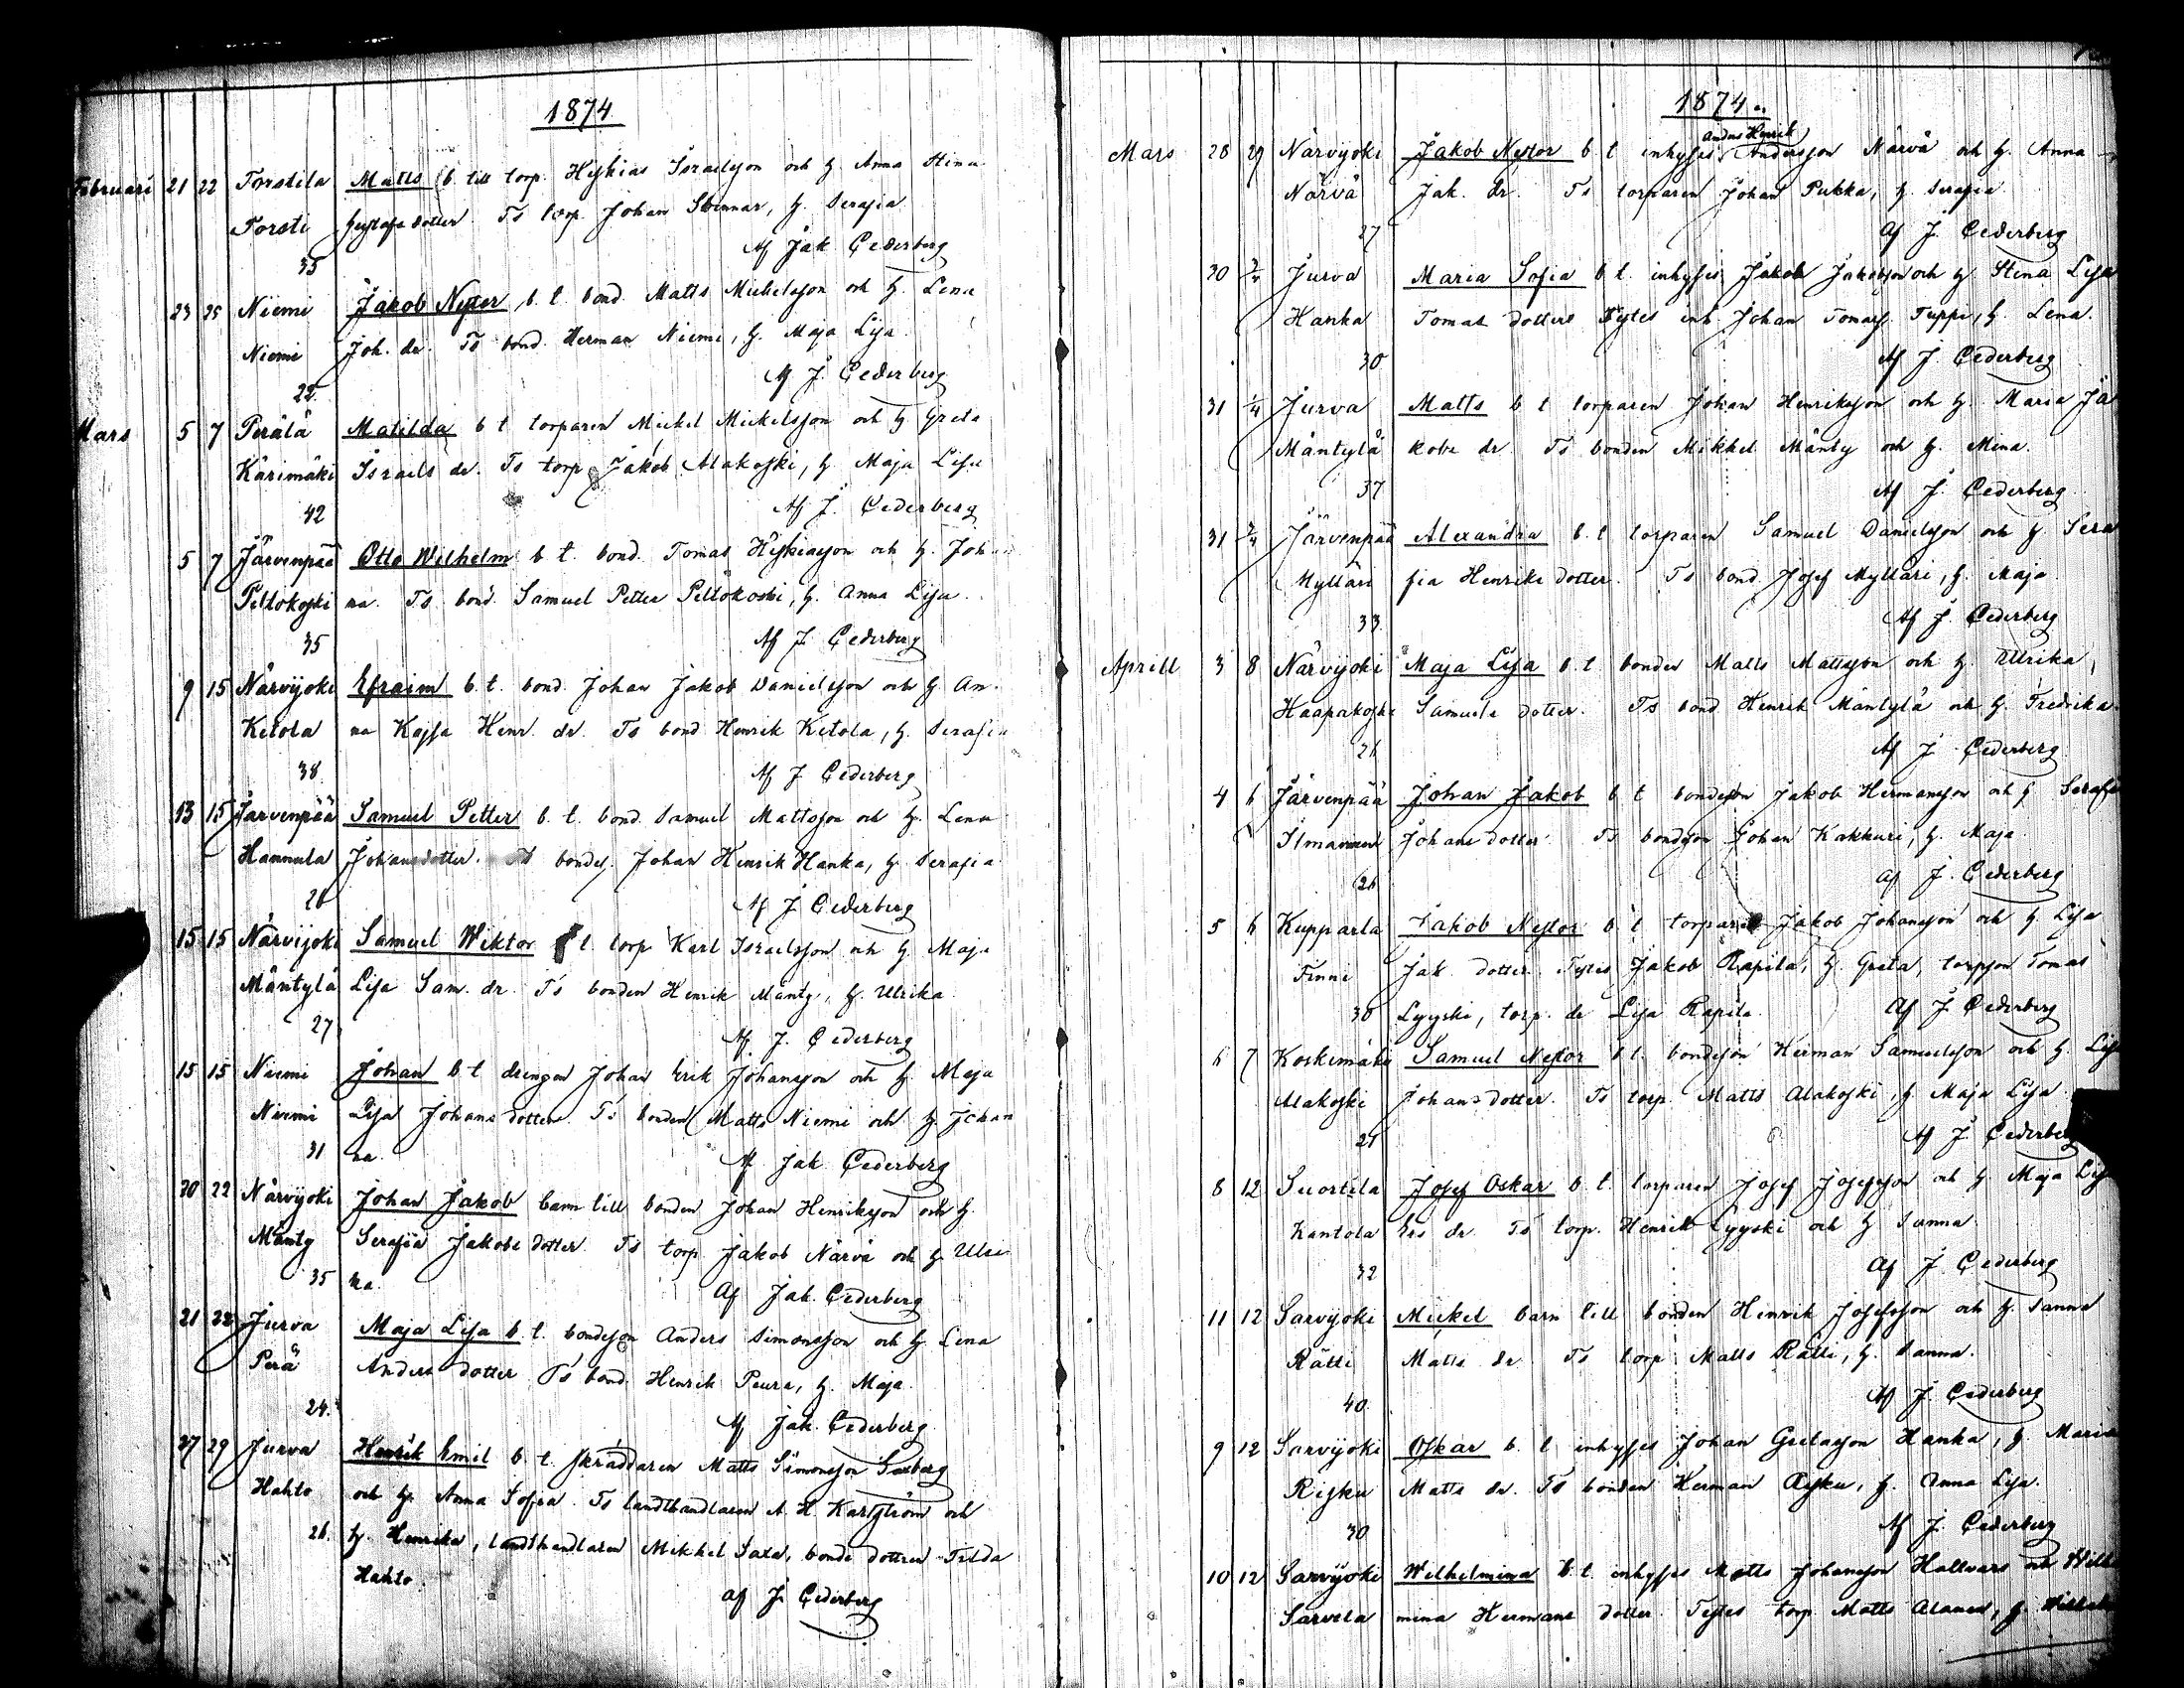 1874
Februari 21 22 Torstila Matts b. till torp. Hiskias Israelsson och h. Anna Stina
Torsti Gustafs dotter. Ts torp. Johan, h. Serafia
35 Af Jak Cederberg
23 25 Niemi Jakob Nestor b. t. bond. Matts Mickelsson och h. Lena
Niemi Joh. dr. Ts bond. Herman Niemi, h. Maja Lisa
22. Af J. Cederberg
Mars 5 7 Perälä Matilda b t torparen Mickel Mickelsson och h Greta
Kärimäki Israels dr. Ts torp. Jakob Alakoski, h. Maja Lisa
42 Af J. Cederberg
5 7 Järvenpää Otto Wilhelm b t. bond. Tomas Hiskiasson och h. Johan
Peltokoski na. Ts. bond. Samuel Petter Peltokoski, h. Anna Lisa.
35 Af J. Cederberg
9 15 Närvijoki Efraim b. t. bond. Johan Jakob Danielsson och h. An-
Ketola na Kajsa Henr. dr. Ts bond Henrik Ketola, h. Serafia
38. Af J Cederberg
13 15 Järvenpää Samuel Petter b. t. bond. Samuel Mattsson och h. Lena
Hannula Johansdotter. Ts bondes. Johan Henrik Hanka, h. Serafia
26 Af J Cederberg
15 15 Närvijoki Samuel Wiktor t. torp Karl Israelsson och h Maja
Mäntylä Lisa Sam. dr. Ts bonden Henrik Mänty, h. Ulrika
27 Af J. Cederberg
15 15 Niemi Johan b t drengen Johan Erik Johansson och h. Maja
Niemi Lisa Johans dotter. Ts bonden Matts Niemi och h. Johan
31 na. Af Jak Cederberg
20 22 Närvijoki Johan Jakob barn till bonden Johan Henriksson och h.
Mänty Serafia Jakobs dotter. Ts torp Jakob Närvä och h. Ulri
35 ka. Af Jak. Cederberg
21 22 Jurva Maja Lisa b. t. bondeson Anders Simonsson och h. Lena
Perä Anders dotter Ts bond. Henrik Peura, h. Maja.
24. Af Jak. Cederberg
27 29 Jurva Henrik Emil b. t. skräddaren Matts Simonsson
Hahto och h. Anna Sofia. Ts landthandlaren A. H. Karlström och
26. h. Henrika, landthandlaren Mikkel, bonde dottren Tilda
Hahto. af J. Cederberg
1874.
Anders Henrik
Mars 28 29 Närvijoki Jakob Nestor b t inhyses Andersson Närvä och h. Anna
Närvä Jak. dr. Ts torparen Johan Pukka, h. Serafia
27 Af J. Cederberg
30 2/4 Jurva Maria Sofia b t. inhyses Jakob Jakobsson och h Stina Lisa
Hanka Tomas dotter Tytes inh. Johan Tomass. Tuppi, h. Lena.
30 Af J. Cederberg
31 1/4 Jurva Matts b t torparen Johan Henriksson och h. Maria Ja
Mäntylä kobs dr Ts bonden Mikkel Mänty och h. Mina.
37 Af J. Cederberg
31 2/4 Järvenpää Alexandra b. t torparen Samuel Danielsson och h Sera
Mylläri fia Henriks dotter. Ts bond. Josef Mylläri, h. Maja.
33. Af J Cederberg
Aprill 3 8 Närvijoki Maja Lisa b. t. bonden Matts Mattsson och h. Ulrika
Haapakoski Samuels dotter. Ts bond Henrik Mäntylä och h. Fredrika.
21 Af J Cederberg
4 6 Järvenpää Johan Jakob b t bondeson Jakob Hermansson och h Serafi
Ilmarinen Johans dotter Ts bondeson Johan Kakkuri, h. Maja.
26 af J. Cederberg
5 6 Kupparla Jakob Nestor b t torparen Jakob Johansson och h Lisa
Finni Jak dotter Tytes Jakob Rapila, h. Greta, torpson Tomas
30 Lyyski, torp. dr Lisa Rapila. Af J Cederberg
6 7 Koskimäki Samuel Nestor b t. bondeson Herman Samuelsson och h. Lisa
Alakoski Johansdotter. Ts torp Matts Alakoski, h. Maja Lisa
21 Af J Cederberg
8 12 Suortila Josef Oskar b. t. torparen Josef Josefsson och h Maja Lis
Kantola Ers dr Ts torp. Henrik Lyyski och h Sanna
32 Af J Cederberg
11 12 Sarvijoki Mickel barn till bonden Henrik Josefsson och h. Sanna
Rätti Matts dr. Ts torp Matts Rätti, h. Sanna.
40 Af J Cederberg
9 12 Sarvijoki Oskar b. t inhyses Johan Gretasson Hanka, h. Maria
Risku Matts dr. Ts bonden Herman Risku, h. Anna Lisa.
30 Af J. Cederberg
10 12 Sarvijoki Wilhelmina b. t. inhyses Matts Johansson Hallvars och Wilh
Sarvela mina Hermans dotter Tytes torp Matts Alanen, h.